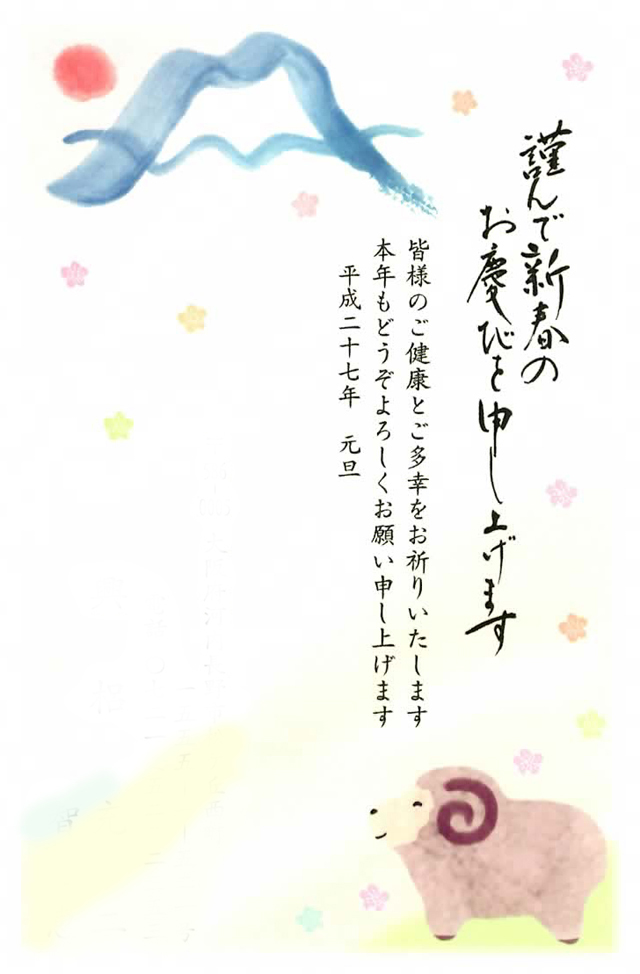 謹んで新春の
お慶びを申し上げます
皆様のご健康とご多幸をお祈りいたします
本年もどうぞよろしくお願い申し上げます
平成二十七年　元旦